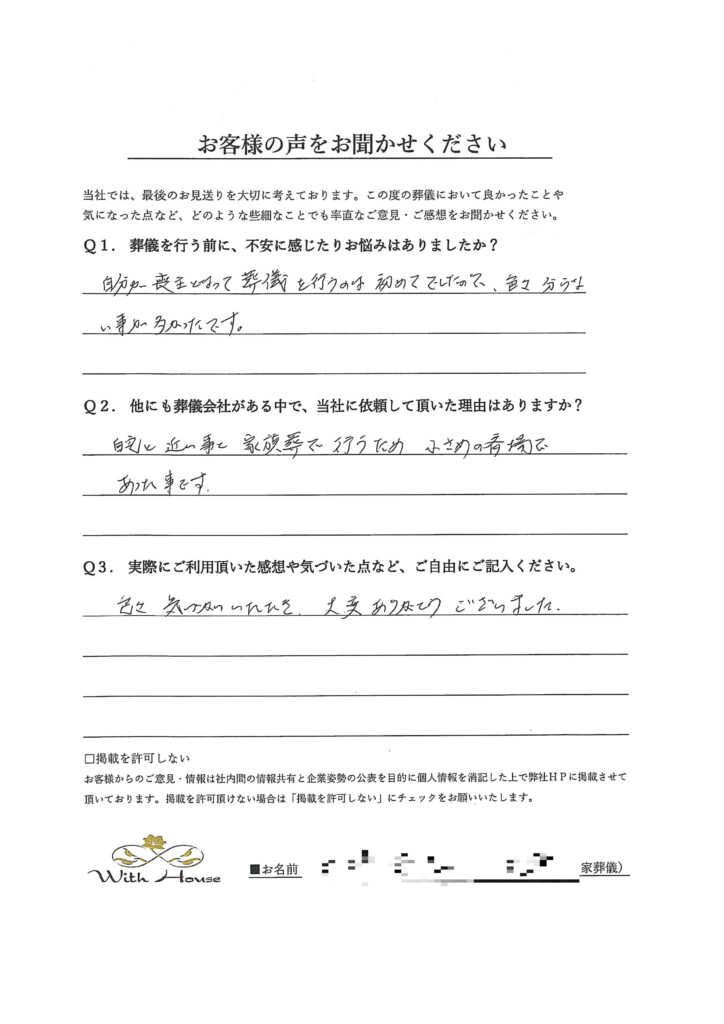 お客様の声をお聞かせください
当社では、最後のお見送りを大切に考えております。この度の葬儀において良かったことや
気になった点など、どのような些細なことでも率直なご意見・ご感想をお聞かせください。
Q1. 葬儀を行う前に、不安に感じたりお悩みはありましたか?
自分が喪主となって葬儀を行うのは初めてでしたので、色々分らな
い事が多かったです。
Q2. 他にも葬儀会社がある中で、当社に依頼して頂いた理由はありますか?
自宅に近い事と家族葬で行うため小さめの斎場で
あった事です.
Q3. 実際にご利用頂いた感想や気づいた点など、ご自由にご記入ください。
色々気づかいいただき、大変ありがとうございました.
□掲載を許可しない
お客様からのご意見・情報は社内間の情報共有と企業姿勢の公表を目的に個人情報を消記した上で弊社HPに掲載させて
頂いております。掲載を許可頂けない場合は「掲載を許可しない」にチェックをお願いいたします。
With House
■お名前 家葬儀)